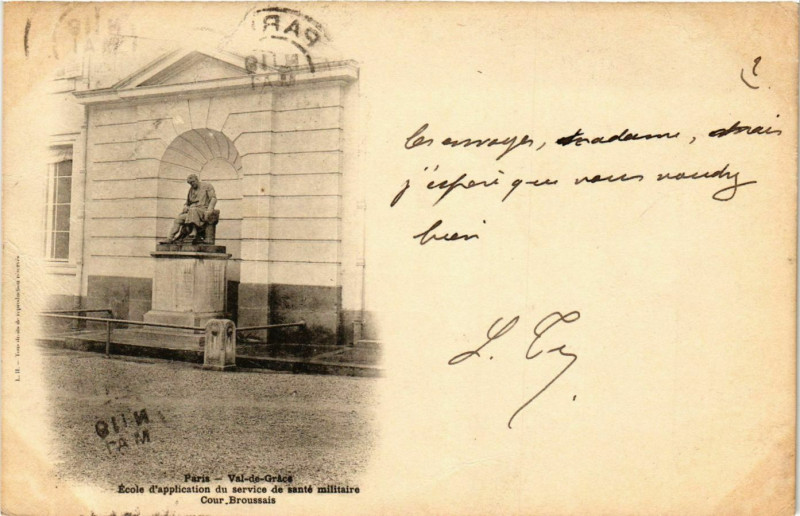 PARI
Madame, Mais
j'espère que vous voudrez
bien
L. H. - Tous droits de reproduction réservés
Paris - Val-de-Grâce
École d'application du service de santé militaire
Cour Broussais